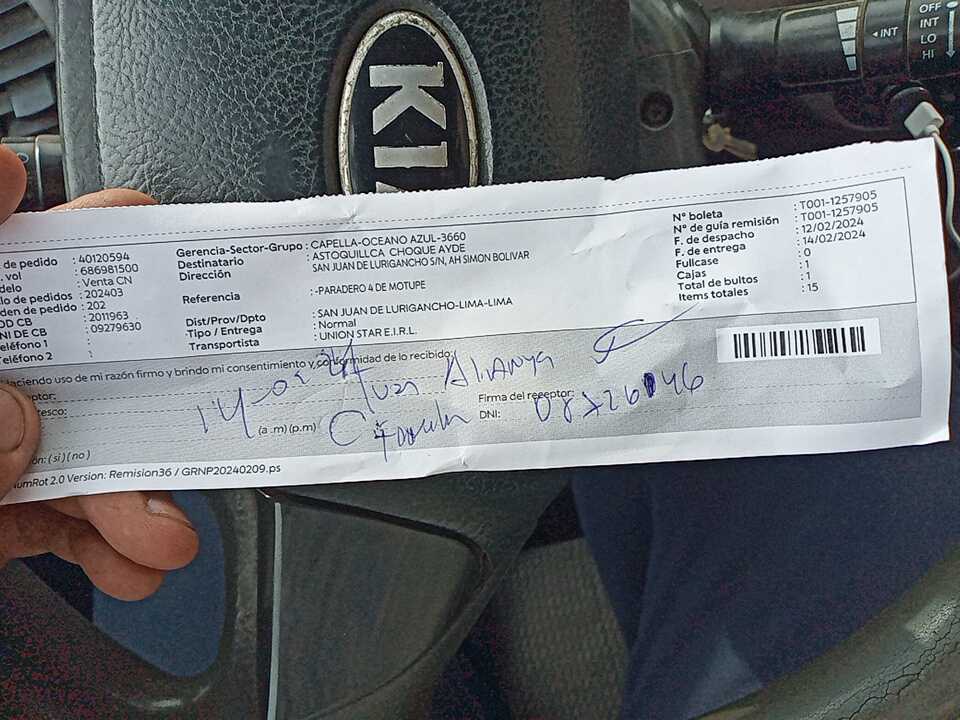 KIA
OFF
INT
INT
LO
HI
de pedido : 40120594
vol : 686981500
delo : Venta CN
lo de pedidos : 202403
den de pedido : 202
OD CB : 2011963
NI DE CB : 09279630
eléfono 1 :
eléfono 2 :
Gerencia-Sector-Grupo : CAPELLA-OCEANO AZUL-3660
Destinatario : ASTOQUILLCA CHOQUE AYDE
Dirección : SAN JUAN DE LURIGANCHO S/N, AH SIMON BOLIVAR
Referencia : -PARADERO 4 DE MOTUPE
Dist/Prov/Dpto : SAN JUAN DE LURIGANCHO-LIMA-LIMA
Tipo / Entrega : Normal
Transportista : UNION STAR E.I.R.L.
N° boleta : T001-1257905
N° de guía remisión : T001-1257905
F. de despacho : 12/02/2024
F. de entrega : 14/02/2024
Fullcase : 0
Cajas : 1
Total de bultos : 1
Items totales : 15
Haciendo uso de mi razón firmo y brindo mi consentimiento y conformidad de lo recibido:
ptor:
tesco:
(a .m) (p.m)
Firma del receptor:
DNI:
ón: ( si ) ( no )
umRot 2.0 Version: Remision36 / GRNP20240209.ps